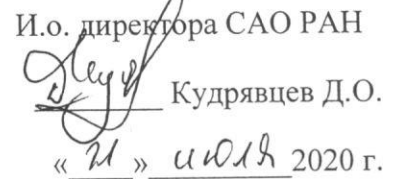 И.о. директора САО РАН
Кудрявцев Д.О.
« 21 » июля 2020 г.